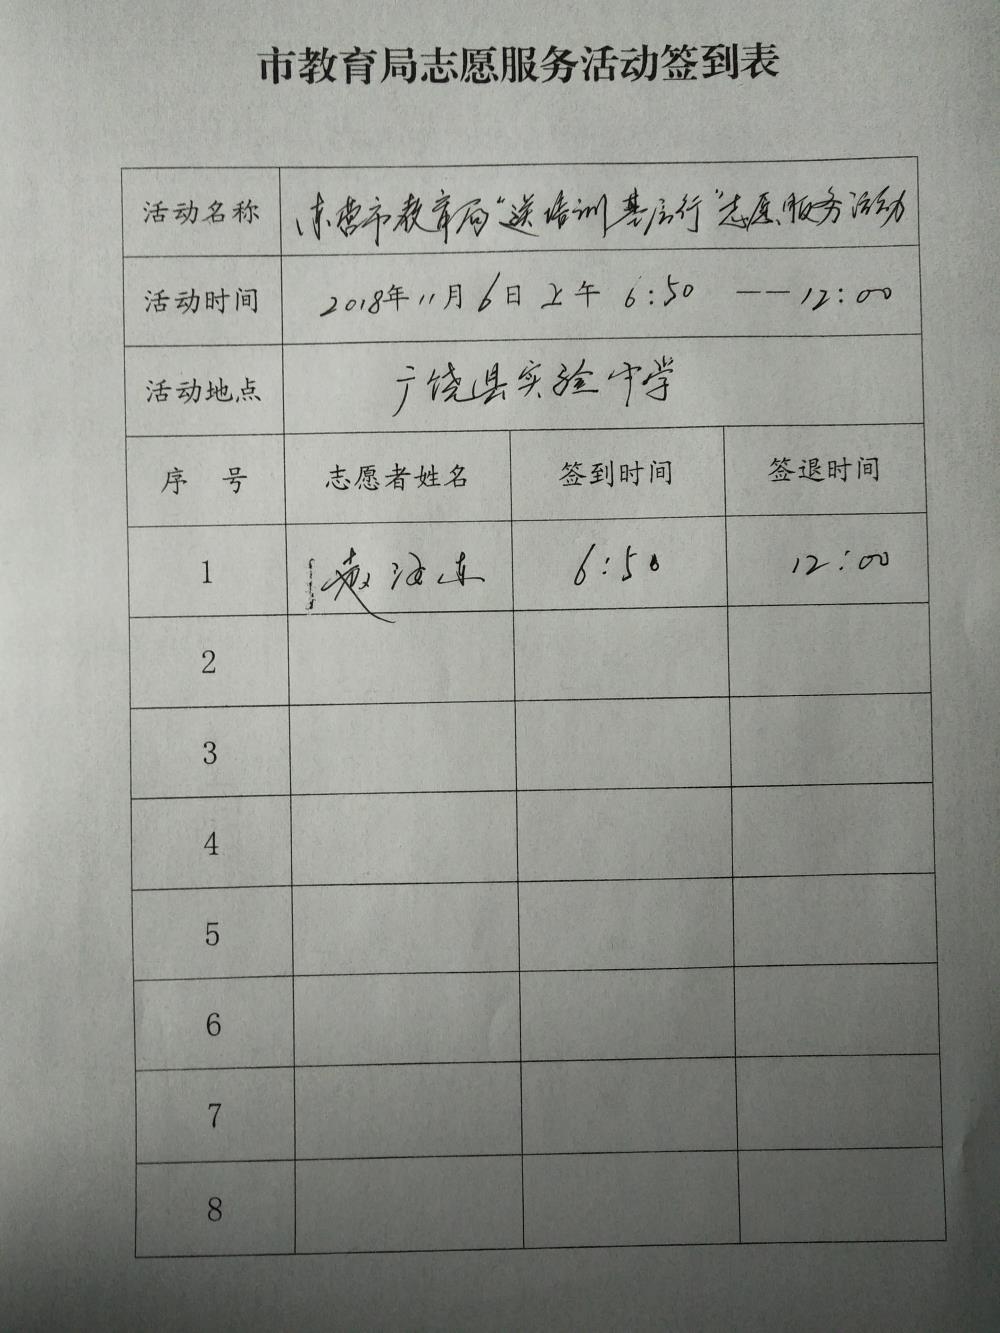 市教育局志愿服务活动签到表
活动名称 东营市教育局“送培训 基层行”志愿服务活动
活动时间 2018年11月6日上午 6:50 —— 12:00
活动地点 广饶县实验中学
序 号 志愿者姓名 签到时间 签退时间
1 6:50 12:00
2
3
4
5
6
7
8